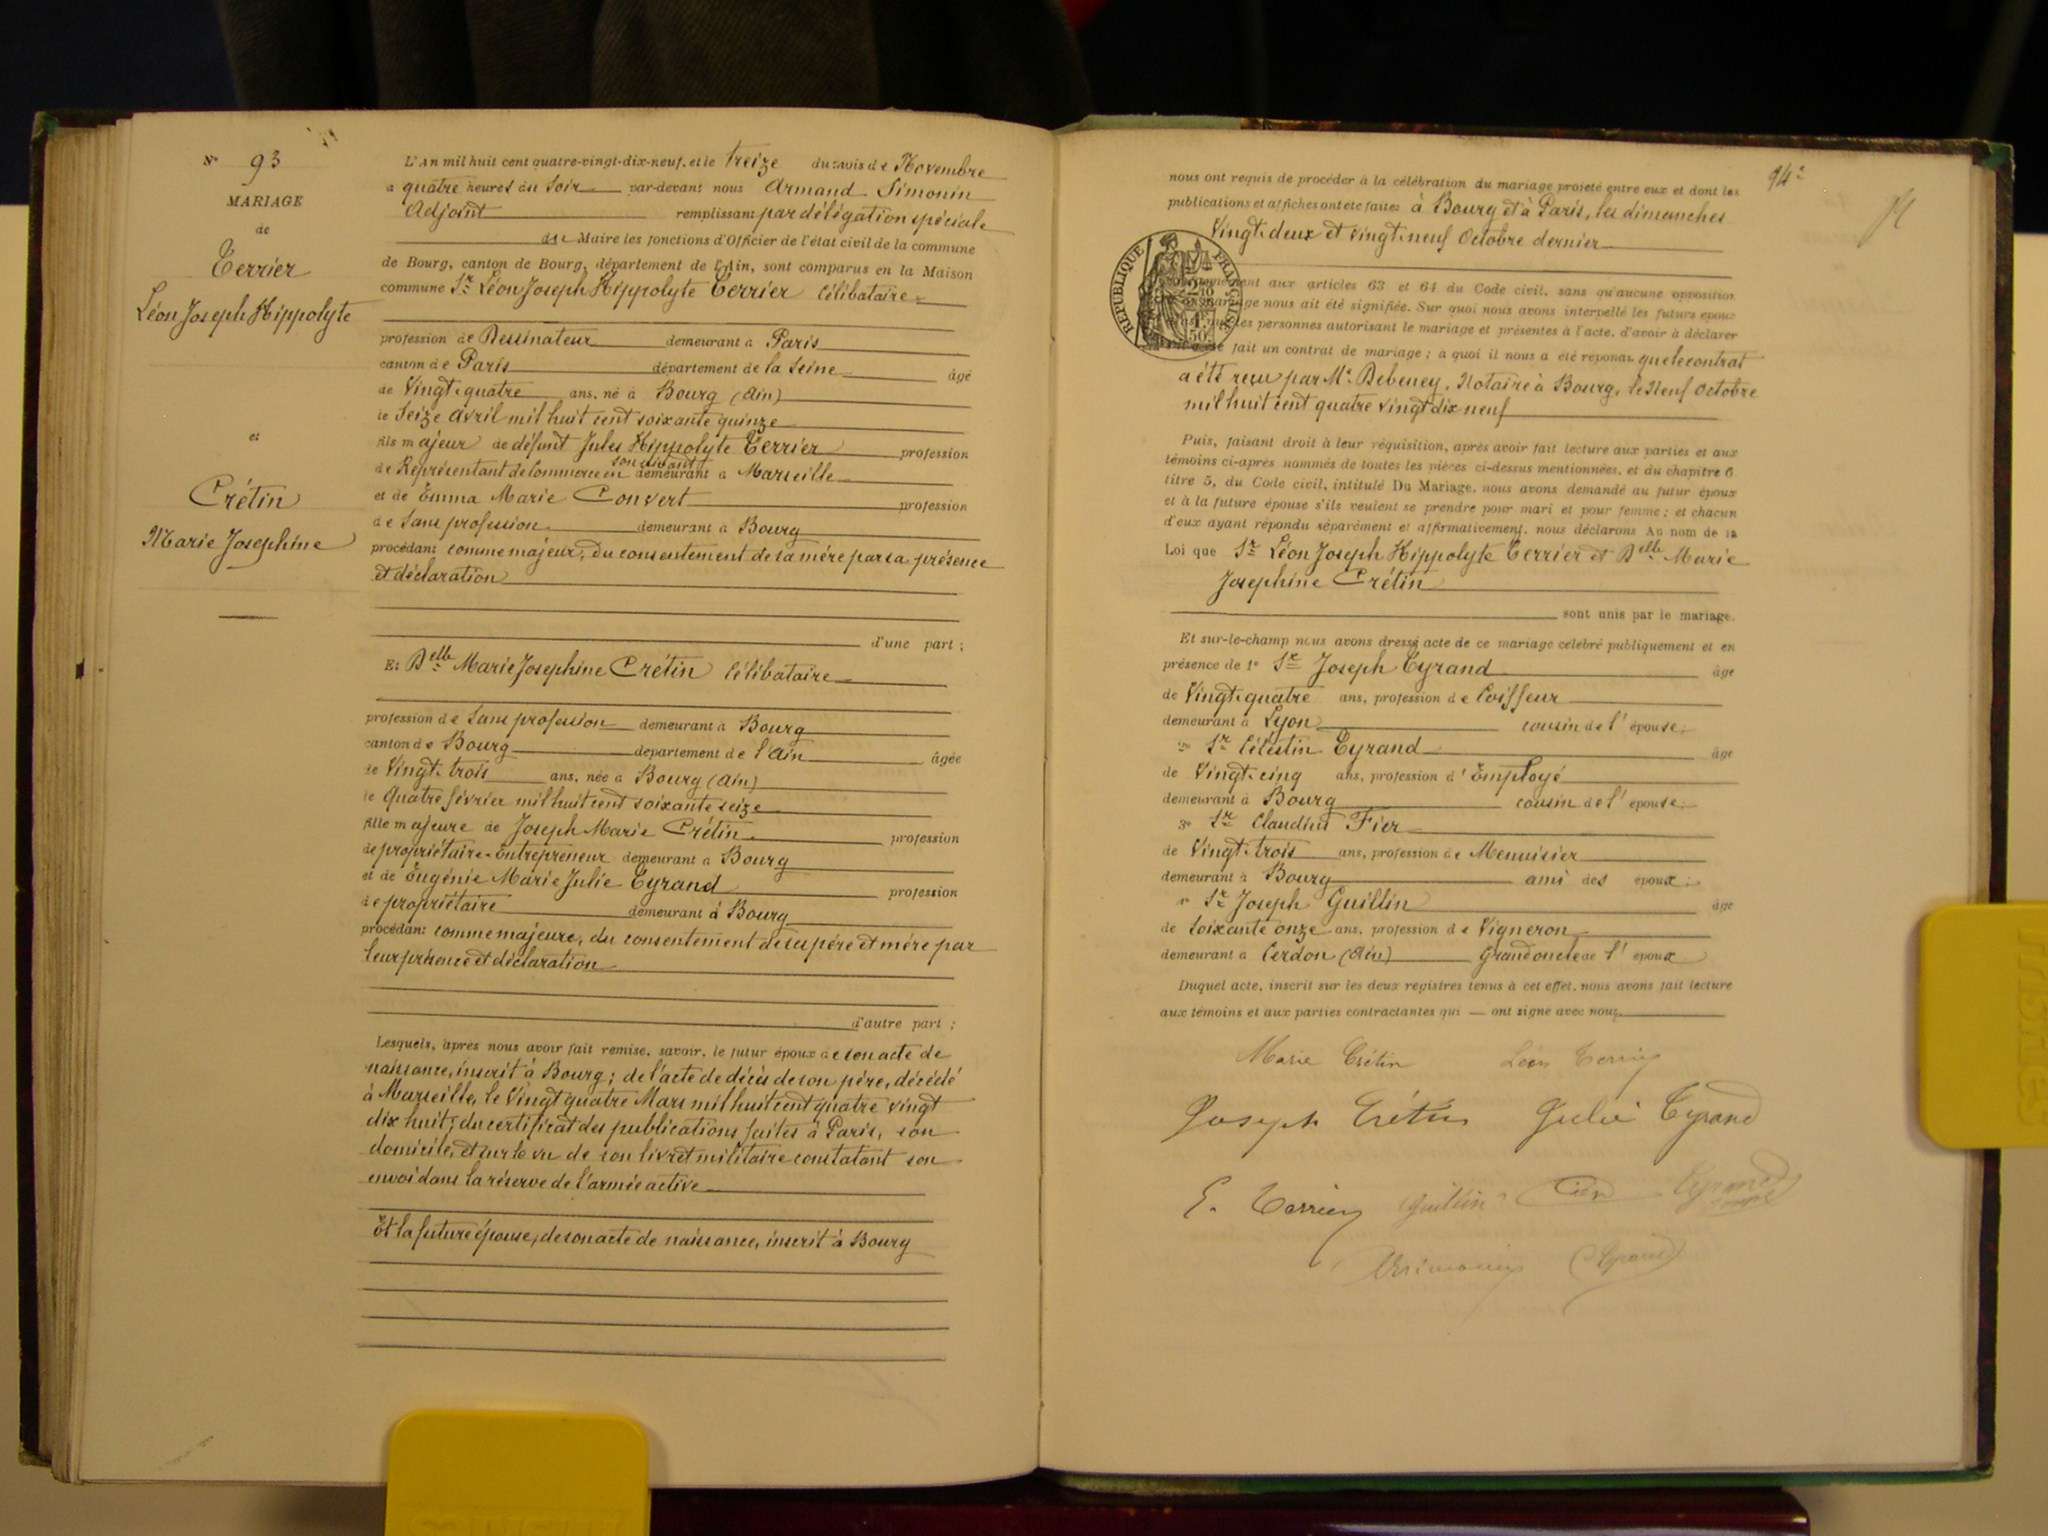 N° 93
MARIAGE
de
Terrier
Léon Joseph Hippolyte
et
Crétin
Marie Josephine
L'An mil huit cent quatre-vingt-dix-neuf, et le treize du mois de Novembre
a quatre heures du Soir par-devant nous Armand Simonin
Adjoint remplissant par délégation spéciale
du Maire les fonctions d'Officier de l'état civil de la commune
de Bourg, canton de Bourg, département de l'Ain, sont comparus en la Maison
commune Sr Léon Joseph Hippolyte Terrier Célibataire
profession de Dessinateur demeurant à Paris
canton de Paris département de la Seine âgé
de Vingt-quatre ans, né à Bourg (Ain)
le Seize Avril mil huit cent soixante quinze
fils majeur de défunt Jules Hippolyte Terrier profession
de Représentant de Commerce en son vivant demeurant à Marseille
et de Emma Marie Convert profession
de Sans profession demeurant à Bourg
procédant comme majeur, du consentement de sa mère par sa présence
et déclaration
d'une part ;
Et Delle Marie Josephine Crétin Célibataire
profession de Sans profession demeurant à Bourg
canton de Bourg département de l'Ain âgée
de Vingt-trois ans, née à Bourg (Ain)
le Quatre février mil huit cent soixante seize
fille majeure de Joseph Marie Crétin profession
de propriétaire-Entrepreneur demeurant à Bourg
et de Eugénie Marie Julie Eyrand profession
de propriétaire demeurant à Bourg
procédant comme majeure, du consentement de ses père et mère par
leur présence et déclaration
d'autre part ;
Lesquels, après nous avoir fait remise, savoir, le futur époux de son acte de
naissance, inscrit à Bourg ; de l'acte de décès de son père, décédé
à Marseille, le Vingt quatre Mars mil huit cent quatre vingt
dix huit ; du certificat des publications faites à Paris, son
domicile, et sur le vu de son livret militaire constatant son
envoi dans la réserve de l'armée active
Et la future épouse, de son acte de naissance, inscrit à Bourg
94
nous ont requis de procéder à la célébration du mariage projeté entre eux et dont les
publications et affiches ont été faites à Bourg et à Paris, les dimanches
Vingt-deux et vingt-neuf Octobre dernier
REPUBLIQUE FRANÇAISE
aux articles 63 et 64 du Code civil, sans qu'aucune opposition
nous ait été signifiée. Sur quoi nous avons interpellé les futurs époux
les personnes autorisant le mariage et présentes à l'acte, d'avoir à déclarer
fait un contrat de mariage ; à quoi il nous a été répondu que le contrat
a été reçu par Me Debeney, Notaire à Bourg, le Neuf Octobre
mil huit cent quatre vingt dix neuf
Puis, faisant droit à leur réquisition, après avoir fait lecture aux parties et aux
témoins ci-après nommés de toutes les pièces ci-dessus mentionnées, et du chapitre 6
titre 5, du Code civil, intitulé Du Mariage, nous avons demandé au futur époux
et à la future épouse s'ils veulent se prendre pour mari et pour femme ; et chacun
d'eux ayant répondu séparément et affirmativement, nous déclarons Au nom de la
Loi que Sr Léon Joseph Hippolyte Terrier et Delle Marie
Josephine Crétin
sont unis par le mariage.
Et sur-le-champ nous avons dressé acte de ce mariage célébré publiquement et en
présence de 1° Sr Joseph Eyrand âgé
de Vingt-quatre ans, profession de Coiffeur
demeurant à Lyon cousin de l'épouse ;
2° Sr Célestin Eyrand âgé
de Vingt-cinq ans, profession d'Employé
demeurant à Bourg cousin de l'épouse ;
3° Sr Claudius Fier
de Vingt-trois ans, profession de Menuisier
demeurant à Bourg ami des époux ;
Sr Joseph Guillin âgé
de Soixante onze ans, profession de Vigneron
demeurant à Cerdon (Ain) Grand oncle de l'époux
Duquel acte, inscrit sur les deux registres tenus à cet effet, nous avons fait lecture
aux témoins et aux parties contractantes qui — ont signé avec nous
Marie Crétin Léon Terrier
Joseph Crétin Julie Eyrand
E. Terrier Guillin Fier Eyrand
ASimonin Eyrand